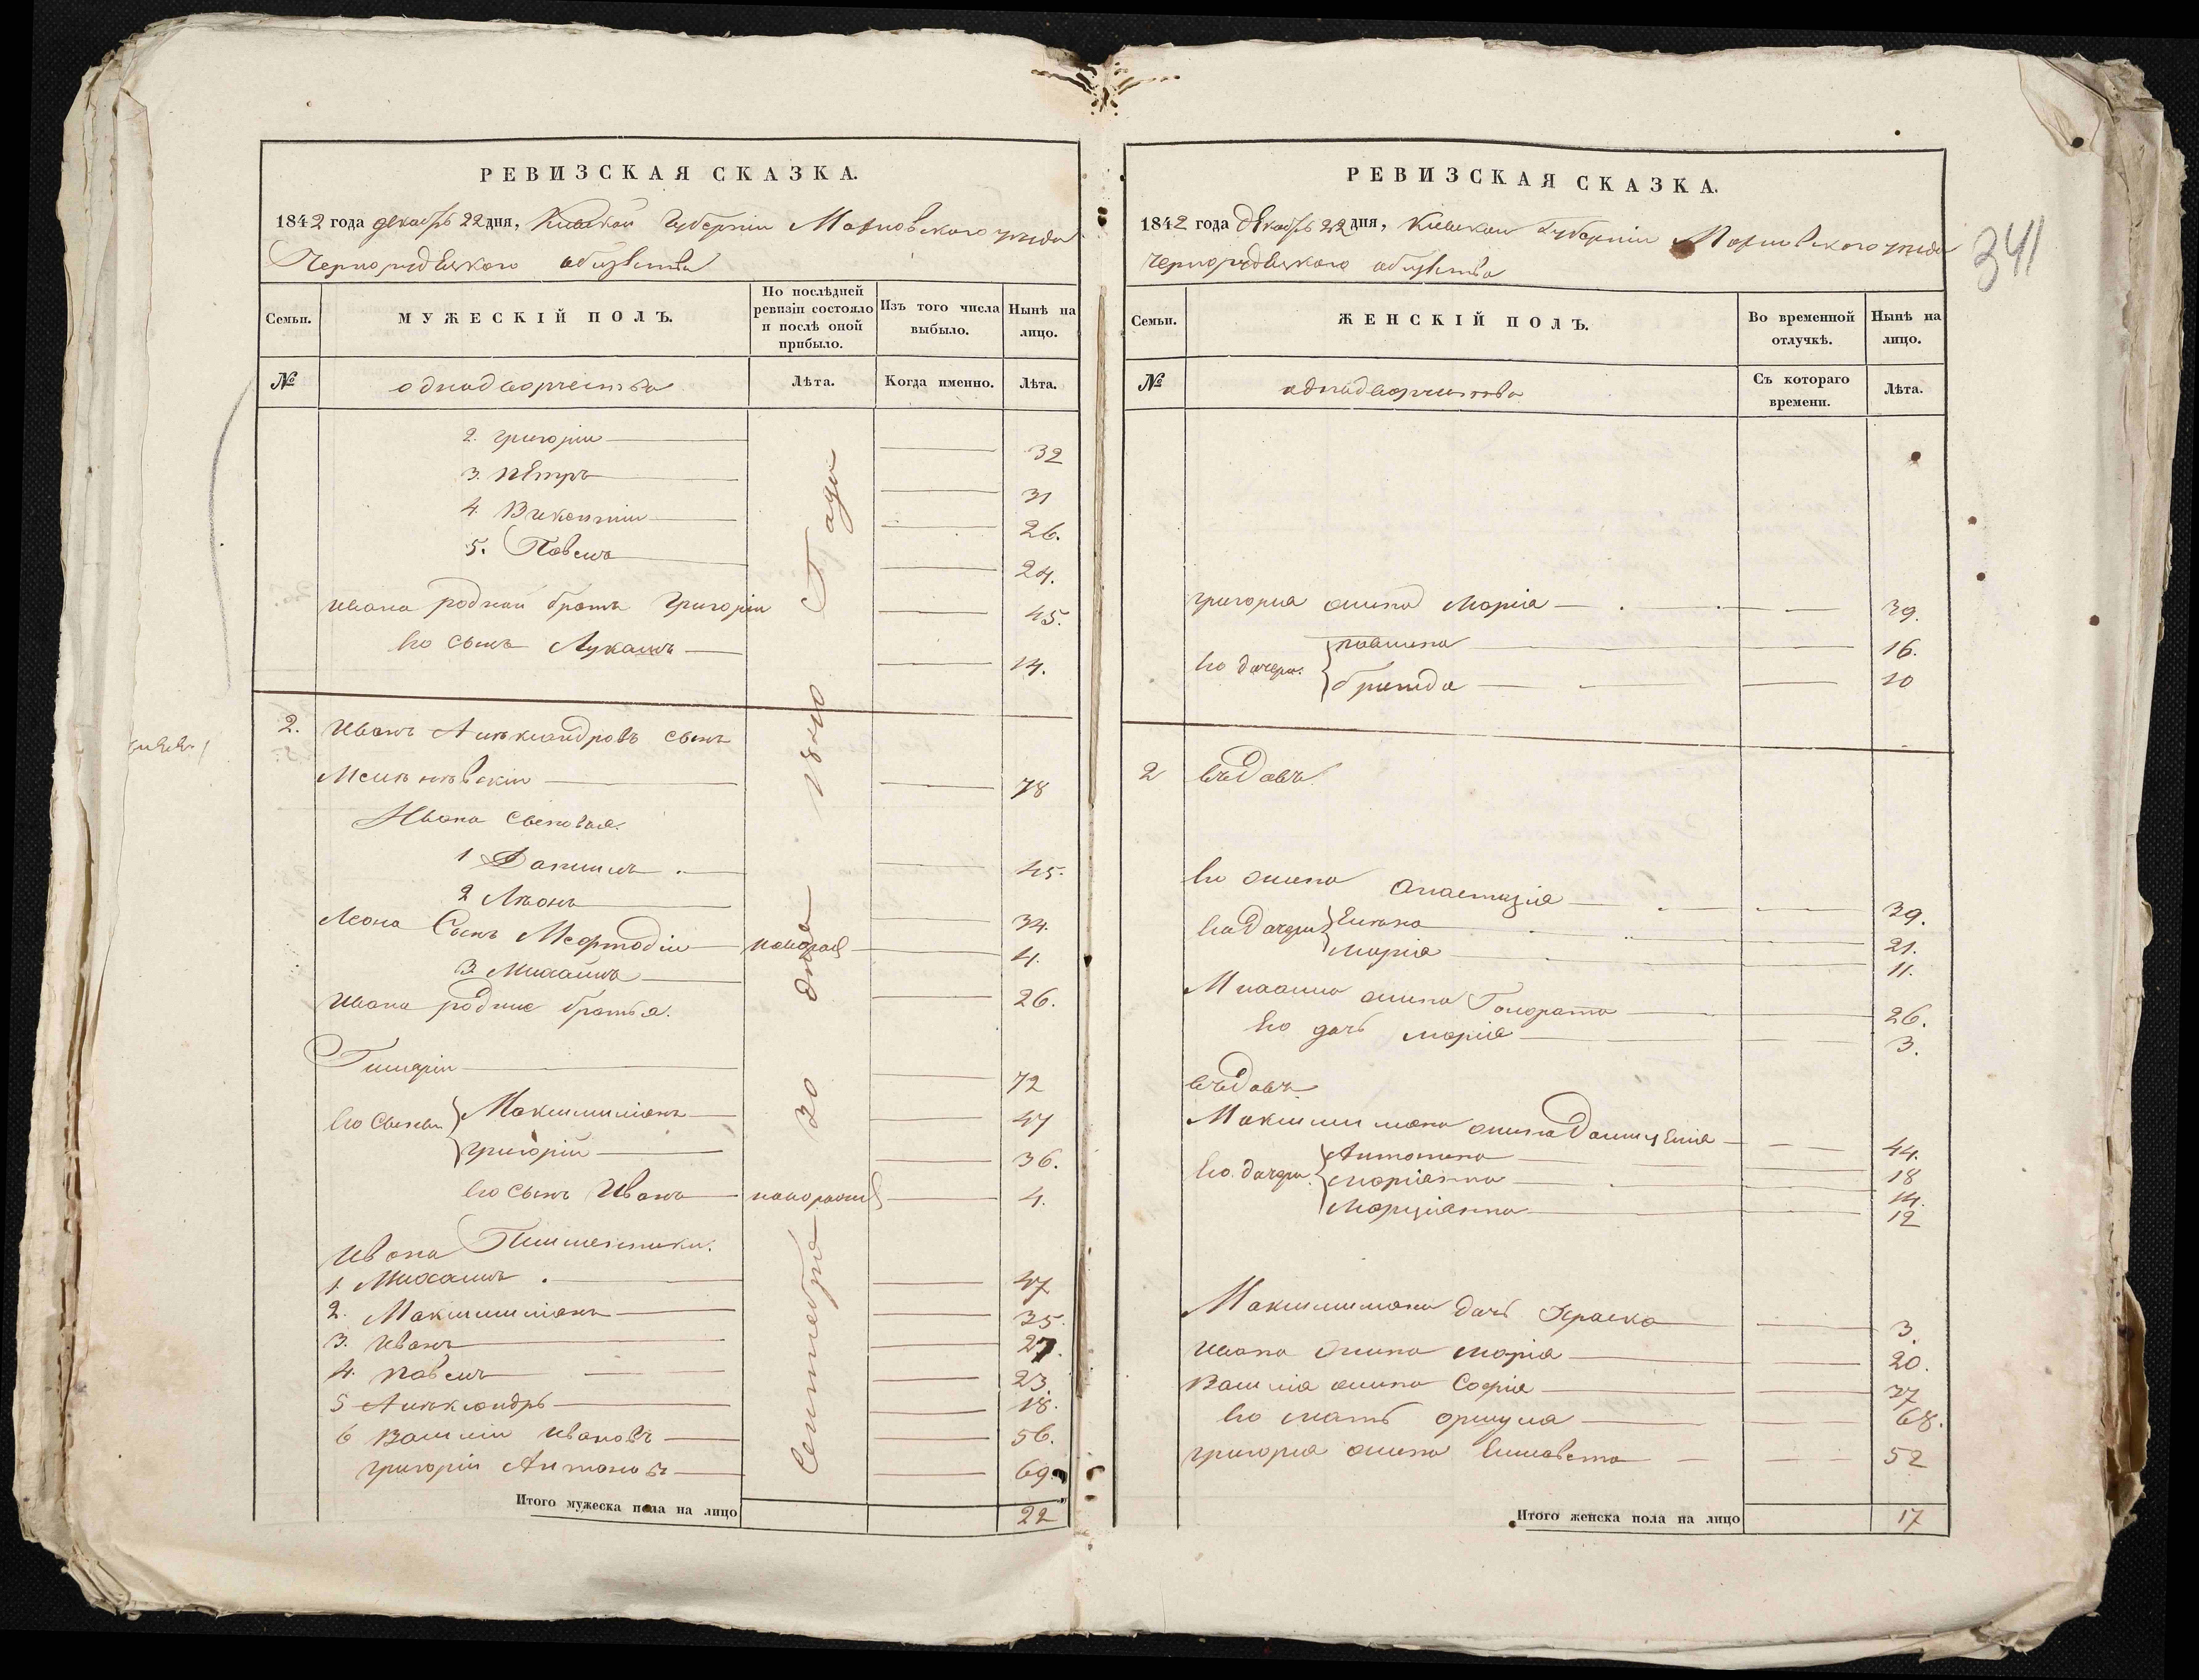 РЕВИЗСКАЯ СКАЗКА.
1842 года декабрь 22 дня, Киевской Губернии Махновского уезда
Чернорудецкого общества
Семьи.
МУЖЕСКІЙ ПОЛЪ.
По послѣдней ревизіи состояло и послѣ оной прибыло.
Изъ того числа выбыло.
Нынѣ на лицо.
№
однодворчества
Лѣта.
Когда именно.
Лѣта.
2. Григорій 32
3. Петръ 31
4. Викентій 26.
5. Павелъ 24.
Ивана родной братъ Григорій 45.
Его сынъ Лукашъ 14.
2. Иванъ Александровъ сынъ
78
Ивана сыновья.
1 Данилъ 45.
2 Леонъ 34.
Леона Сынъ Мефтодій 4.
3 Михаилъ 26.
Ивана родние братья.
72
Его Сыновья Максимиліянъ 47
Григорій 36.
Его сынъ Иванъ 4.
Ивана Племенники.
1. Михаилъ 47
2. Максимиліянъ 35.
3. Иванъ 27.
4. Павелъ 23.
5 Александръ 18.
6 Василій Ивановъ 56.
Григорій Антоновъ 69.
Сентября 30 дня 18ню Года
Итого мужеска пола на лицо 22
РЕВИЗСКАЯ СКАЗКА.
1842 года декабрь 22 дня, Киевской Губернии Махновского уезда
Чернорудецкого общества
341
Семьи.
ЖЕНСКІЙ ПОЛЪ.
Во временной отлучкѣ.
Нынѣ на лицо.
№
однодворчества
Съ котораго времени.
Лѣта.
Григорія жена Марія 39.
Его дочери: Павлина 16.
Бригида 10
2 въдовъ
Его жена Анастазія 39.
Его дочери Елена 21.
Марія 11.
Михаила жена Гонората 26.
Его дочь Марія 3.
въдовъ
Максимиліяна жена Домицелія 44.
Его дочери: Антонина 18
Маріанна 14.
Марціанна 12
Максимиліяна дочь 3.
Ивана жена Марія 20.
Василія жена Софія 37
Его мать Оршуля 68.
Григорія жена Елисавета 52
Итого женска пола на лицо 17